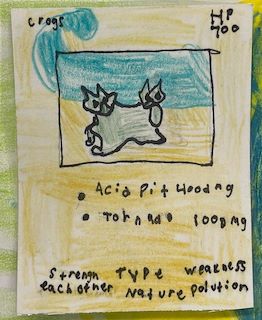 crogs
HP
700
Acid Pit 400dmg
Tornado 100dmg
Strengh TYPE weakness
each other Nature polution